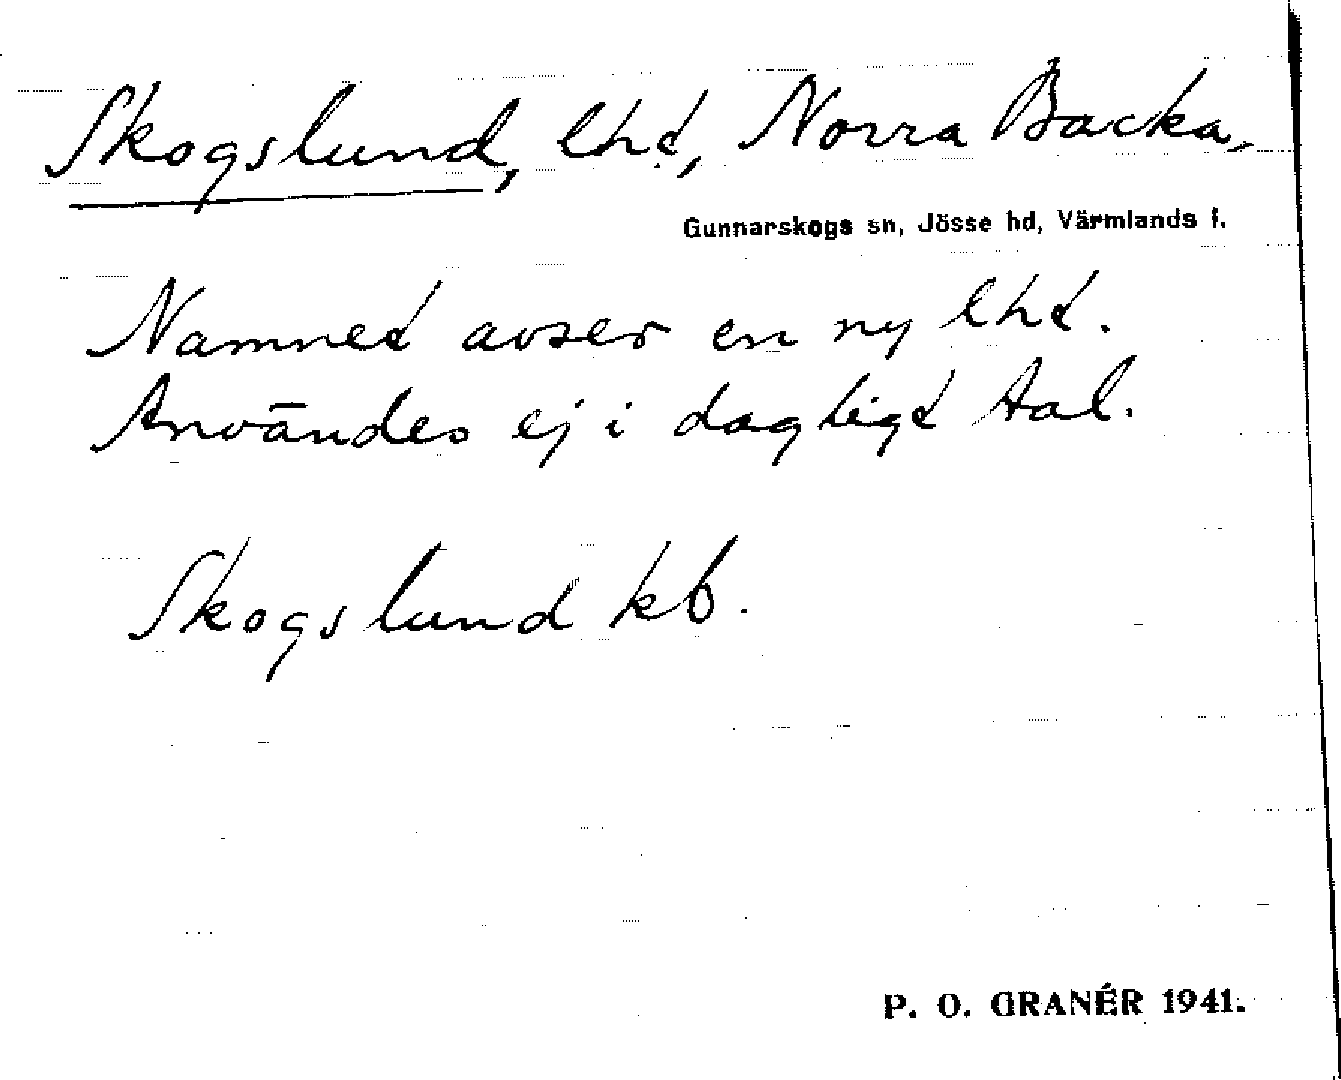 Skogslund, lht, Norra Backa,
Gunnarskogs sn, Jösse hd, Värmlands l.
Namnet avser en ny lht.
Användes ej i dagligt tal.
Skogslund kb.
P. O. GRANÉR 1941.